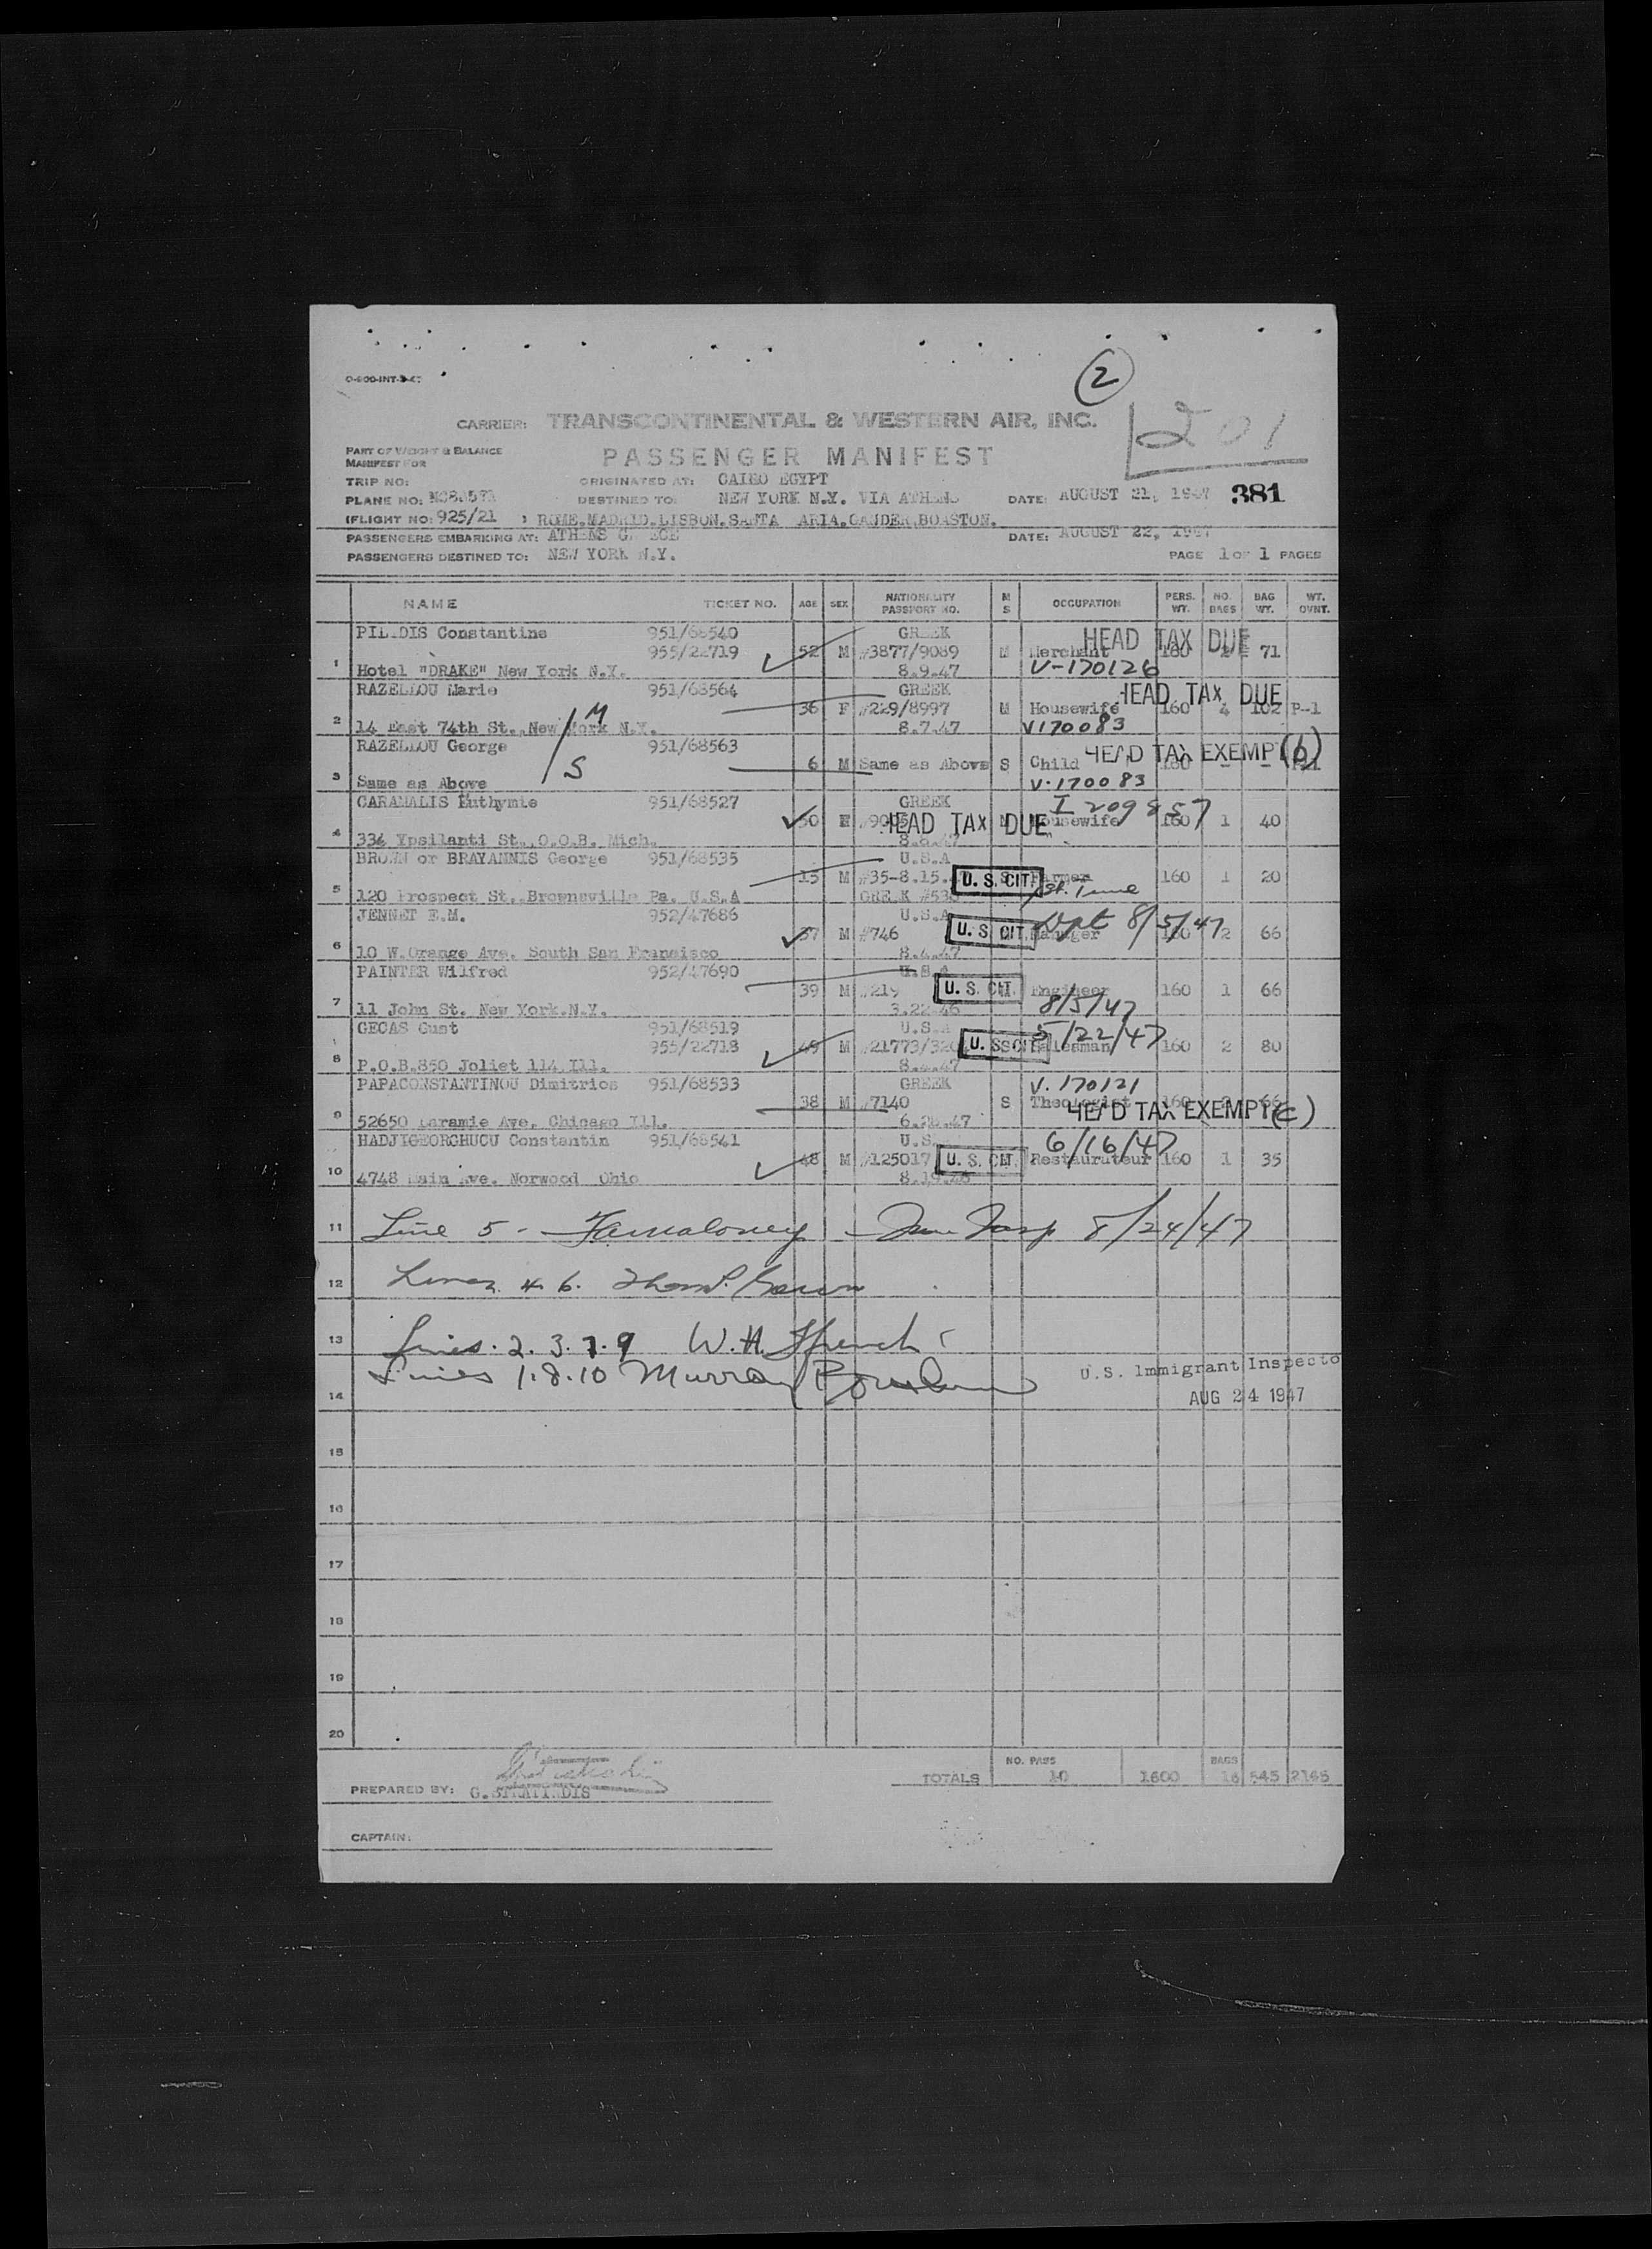 2
CARRIER: TRANSCONTINENTAL & WESTERN AIR, INC.
201
PART OF WEIGHT & BALANCE
MANIFEST FOR
PASSENGER MANIFEST
TRIP NO: ORIGINATED AT: CAIRO EGYPT
PLANE NO: DESTINED TO: NEW YORK N.Y. VIA ATHENS DATE: AUGUST 21, 1947 381
(FLIGHT NO: 925/21 ) ROME.MADRID.LISBON.SANTA ARIA.GANDER.BOASTON.
PASSENGERS EMBARKING AT: ATHENS DATE: AUGUST 22, 1947
PASSENGERS DESTINED TO: NEW YORK N.Y. PAGE 1 OF 1 PAGES
NAME TICKET NO. AGE SEX NATIONALITY PASSPORT NO. M S OCCUPATION PERS. WT. NO. BAGS BAG WT. WT. OVNT.
Constantine 951/68540 GREEK HEAD TAX DUE
955/22719 52 M #3877/9089 M Merchant 160 71
1 Hotel "DRAKE" New York N.Y. 8.9.47 V-170126
RAZELLOU Marie 951/68564 GREEK HEAD TAX DUE
36 F #229/8997 M Housewife 160 4 102 P-1
2 14 East 74th St., New York N.Y. M 8.7.47 V170083
RAZELLOU George 951/68563 HEAD TAX EXEMPT (b)
S 6 M Same as Above S Child 160 - -
3 Same as Above V-170083
CARAMALIS Euthymie 951/68527 GREEK I 209857
HEAD TAX DUE Housewife 160 1 40
4 336 Ypsilanti St., O.O.B. Mich. 8.8.47
BROWN or BRAYANNIS George 951/68535 U.S.A
15 M #35-8.15. U. S. CIT. Farmer 160 1 20
5 120 Prospect St., Brownsville Pa. U.S.A GREEK
JENNET E.M. 952/47686 U.S.A Dept 8/5/47
37 M #746 U. S. CIT. Manager 160 2 66
6 10 W.Orange Ave. South San Fransisco 8.4.47
PAINTER Wilfred 952/47690 U.S.A
39 M #219 U. S. CIT. Engineer 160 1 66
7 11 John St. New York.N.Y. 3.22.46 8/5/47
GECAS Gust 951/68519 U.S.A 5/22/47
955/22718 49 M U. S. CIT. Salesman 160 2 80
8 P.O.B.850 Joliet 114 Ill. 8.4.47
PAPACONSTANTINOU Dimitrios 951/68533 GREEK V. 170121
38 M #7140 S Theologist 160 66
HEAD TAX EXEMPT (c)
9 52650 Laramie Ave. Chicago Ill. 47
HADJIGEORGHUCU Constantin 951/68541 U.S. 6/16/47
48 M #125017 U. S. CIT. Restaurateur 160 1 35
10 4748 Main Ave. Norwood Ohio
11 Line 5 - 8/24/47
12 Lines 4.6.
13 Lines. 2. 3. 7. 9 W.H. Ffrench
Lines 1.8.10 Murray U.S. Immigrant Inspecto
14 AUG 24 1947
15
16
17
18
19
20
NO. PASS BAGS
TOTALS 10 1600 545 2145
PREPARED BY: G.
CAPTAIN: